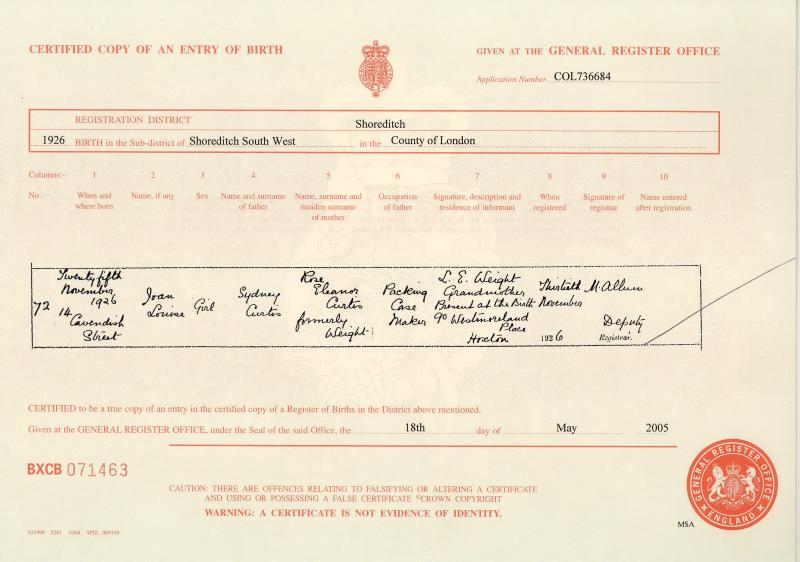 CERTIFIED COPY OF AN ENTRY OF BIRTH
GIVEN AT THE GENERAL REGISTER OFFICE
Application Number COL736684
REGISTRATION DISTRICT Shoreditch
1926 BIRTH in the Sub-district of Shoreditch South West in the County of London
Columns:- 1 2 3 4 5 6 7 8 9 10
No. When and where born Name, if any Sex Name and surname of father Name, surname and maiden surname of mother Occupation of father Signature, description and residence of informant When registered Signature of registrar Name entered after registration
72
Twenty fifth
November
1926
14
Cavendish
Street
Joan
Louise
Girl
Sydney
Curtis
Rose
Eleanor
Curtis
formerly
Weight
Packing
Case
Maker
L. E. Weight
Grandmother
Present at the Birth
90 Westmoreland
Place
Hoxton
Thirtieth
November
1926
M. Allum
Deputy
Registrar.
CERTIFIED to be a true copy of an entry in the certified copy of a Register of Births in the District above mentioned.
Given at the GENERAL REGISTER OFFICE, under the Seal of the said Office, the 18th day of May 2005
BXCB 071463
CAUTION: THERE ARE OFFENCES RELATING TO FALSIFYING OR ALTERING A CERTIFICATE
AND USING OR POSSESSING A FALSE CERTIFICATE ©CROWN COPYRIGHT
WARNING: A CERTIFICATE IS NOT EVIDENCE OF IDENTITY.
GENERAL REGISTER OFFICE
ENGLAND
MSA